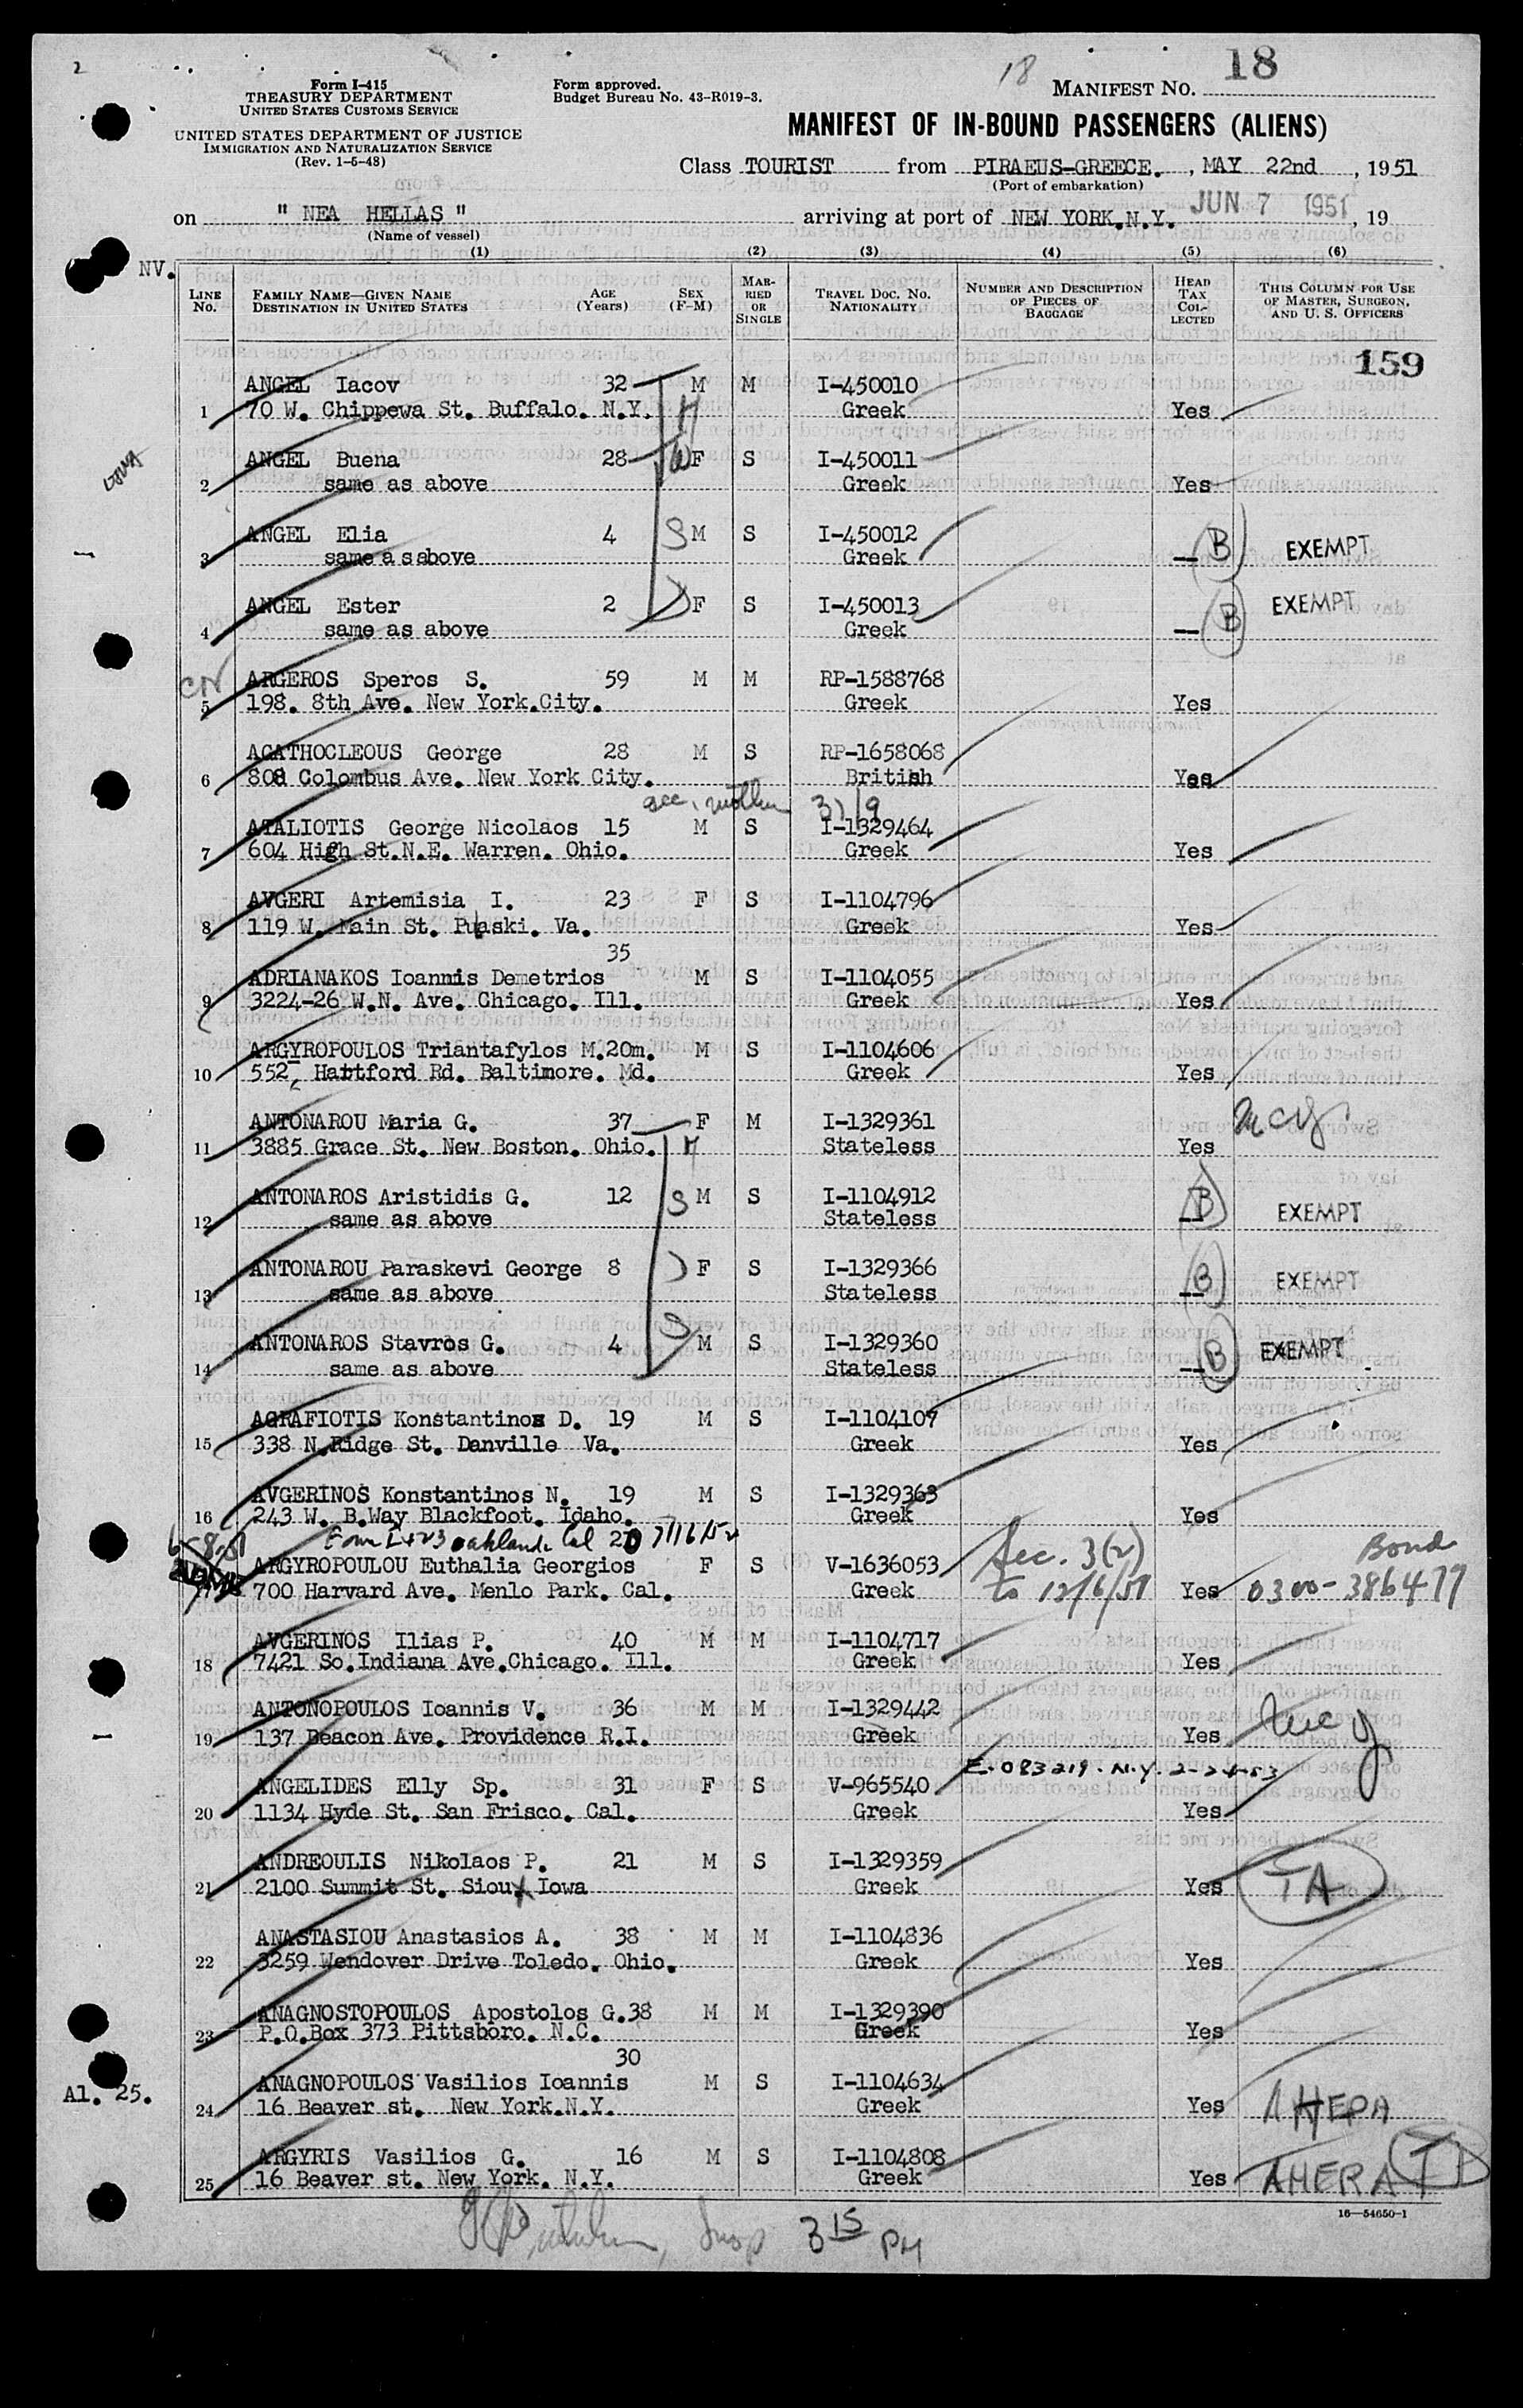 2
18
18
Form I-415
TREASURY DEPARTMENT
UNITED STATES CUSTOMS SERVICE
UNITED STATES DEPARTMENT OF JUSTICE
IMMIGRATION AND NATURALIZATION SERVICE
(Rev. 1-5-48)
Form approved.
Budget Bureau No. 43-R019-3.
MANIFEST NO.
MANIFEST OF IN-BOUND PASSENGERS (ALIENS)
Class TOURIST from PIRAEUS-GREECE. , MAY 22nd , 1951
(Port of embarkation)
on " NEA HELLAS " arriving at port of NEW YORK.N.Y. JUN 7 1951 , 19
(Name of vessel)
NV.
(1) (2) (3) (4) (5) (6)
LINE NO. FAMILY NAME—GIVEN NAME DESTINATION IN UNITED STATES AGE (Years) SEX (F-M) MARRIED OR SINGLE TRAVEL DOC. NO. NATIONALITY NUMBER AND DESCRIPTION OF PIECES OF BAGGAGE HEAD TAX COLLECTED THIS COLUMN FOR USE OF MASTER, SURGEON, AND U. S. OFFICERS
159
ANGEL Iacov 32 M M I-450010
1 70 W. Chippewa St. Buffalo. N.Y. H Greek Yes
ANGEL Buena 28 W F S I-450011
2 same as above Greek Yes
ANGEL Elia 4 S M S I-450012 B EXEMPT
3 same a s above Greek —
ANGEL Ester 2 D F S I-450013 B EXEMPT
4 same as above Greek —
CN
ARGEROS Speros S. 59 M M RP-1588768
5 198. 8th Ave. New York.City. Greek Yes
AGATHOCLEOUS George 28 M S RP-1658068
6 808 Colombus Ave. New York City. British Yes
acc. mother 31/9
ATALIOTIS George Nicolaos 15 M S I-1329464
7 604 High St.N.E. Warren. Ohio. Greek Yes
AVGERI Artemisia I. 23 F S I-1104796
8 119 W. Main St. Pulaski. Va. Greek Yes
35
ADRIANAKOS Ioannis Demetrios M S I-1104055
9 3224-26 W.N. Ave. Chicago. Ill. Greek Yes
ARGYROPOULOS Triantafylos M.20m. M S I-1104606
10 552, Hartford Rd. Baltimore. Md. Greek Yes
ANTONAROU Maria G. 37 F M I-1329361
11 3885 Grace St. New Boston. Ohio. M Stateless Yes
ANTONAROS Aristidis G. 12 S M S I-1104912 B EXEMPT
12 same as above Stateless —
ANTONAROU Paraskevi George 8 D F S I-1329366 B EXEMPT
13 same as above Stateless —
ANTONAROS Stavros G. 4 S M S I-1329360 B EXEMPT
14 same as above Stateless —
AGRAFIOTIS Konstantinos D. 19 M S I-1104107
15 338 N.Ridge St. Danville Va. Greek Yes
AVGERINOS Konstantinos N. 19 M S I-1329363
16 243 W. B.Way Blackfoot. Idaho. Greek Yes
6-8-51 Form I-423 Oakland Cal 20 7/16/52
ARGYROPOULOU Euthalia Georgios F S V-1636053 Sec. 3(2) Bond
17 700 Harvard Ave. Menlo Park. Cal. Greek to 12/6/51 Yes 0300-386477
AVGERINOS Ilias P. 40 M M I-1104717
18 7421 So.Indiana Ave.Chicago. Ill. Greek Yes
ANTONOPOULOS Ioannis V. 36 M M I-1329442
19 137 Beacon Ave. Providence R.I. Greek Yes
E-083219. N.Y. 2-24-53
ANGELIDES Elly Sp. 31 F S V-965540
20 1134 Hyde St. San Frisco. Cal. Greek Yes
ANDREOULIS Nikolaos P. 21 M S I-1329359
21 2100 Summit St. Sioux Iowa Greek Yes TA
ANASTASIOU Anastasios A. 38 M M I-1104836
22 3259 Wendover Drive Toledo. Ohio. Greek Yes
ANAGNOSTOPOULOS Apostolos G.38 M M I-1329390
23 P.O.Box 373 Pittsboro. N.C. Greek Yes
30
Al. 25.
ANAGNOPOULOS Vasilios Ioannis M S I-1104634
24 16 Beaver st. New York.N.Y. Greek Yes AHEPA
ARGYRIS Vasilios G. 16 M S I-1104808
25 16 Beaver st. New York. N.Y. Greek Yes AHEPA
16—54650-1
Insp 3 15 PM